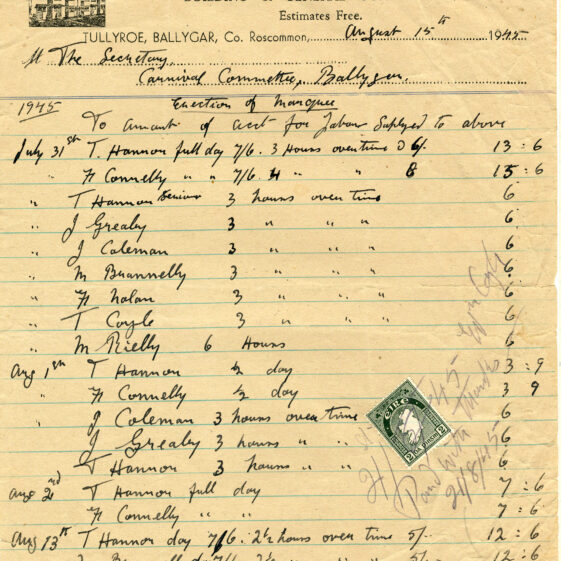 Estimates Free.
TULLYROE, BALLYGAR, Co. Roscommon, August 15th 1945
M The Secretary,
Carnival Committee, Ballygar.
1945 Erection of Marquee
To amount of acct for Labour Suplyed to above
July 31st T. Hannon full day 7/6. 3 Hours overtime @ 6/. 13 : 6
" F Connelly " " 7/6. 4 " 8 15 : 6
" T Hannon Senior 3 hours over time 6
" J Grealy 3 " " " 6
" J Coleman 3 " " " 6
" M Brannelly 3 " " " 6
" F Nolan 3 " " " 6
" T Coyle 3 " " " 6
" M Rielly 6 Hours 6
Aug 1st T Hannon ½ day 3 : 9
" F Connelly ½ day 3 9
" J Coleman 3 hours over time 6
J Grealy 3 hours " " 6
T Hannon 3 hours " " 6
Aug 2nd T Hannon full day 7 : 6
F Connelly " " 7 : 6
Aug 13th T Hannon day 7/6. 2½ hours over time 5/- 12 : 6
day 7/6 2½ " " " 5/- 12 : 6
éire
2 2
Paid with Thanks
21/8/45
Coyle